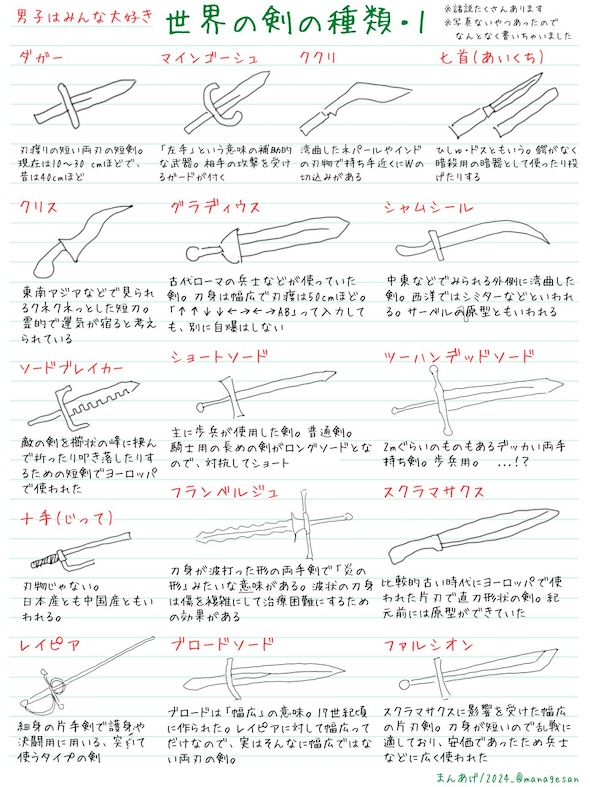 男子はみんな大好き
世界の剣の種類・1
※諸説たくさんあります
※写真ないやつあったので
なんとなく書いちゃいました
ダガー
刃渡りの短い両刃の短剣。
現在は10〜30cmほどで、
昔は40cmほど
マインゴーシュ
「左手」という意味の補助的
な武器。相手の攻撃を受け
るガードが付く
ククリ
湾曲したネパールやインド
の刃物で持ち手近くにWの
切込みがある
七首(あいくち)
ひしゅ・ドスともいう。鍔がなく
暗殺用の暗器として使ったり投
げたりする
クリス
東南アジアなどで見られ
るクネクネっとした短刀。
霊的で運気が宿ると考え
られている
グラディウス
古代ローマの兵士などが使っていた
剣。刀身は幅広で刃渡は50cmほど。
「↑↑↓↓←→←→AB」って入力して
も、別に自爆はしない
シャムシール
中東などでみられる外側に湾曲した
剣。西洋ではシミターなどといわれ
る。サーベルの原型ともいわれる
ソードブレイカー
敵の剣を櫛状の峰に挟ん
で折ったり叩き落したりす
るための短剣でヨーロッパ
で使われた
ショートソード
主に歩兵が使用した剣。普通剣。
騎士用の長めの剣がロングソードとな
ので、対抗してショート
ツーハンデッドソード
2mぐらいのものもあるデッカい両手
持ち剣。歩兵用。 ...!?
十手(じって)
刃物じゃない。
日本産とも中国産ともい
われる。
フランベルジュ
刀身が波打った形の両手剣で「炎の
形」みたいな意味がある。波状の刀身
は傷を複雑にして治療困難にするため
の効果がある
スクラマサクス
比較的古い時代にヨーロッパで使
われた片刃で直刀形状の剣。紀
元前には原型ができていた
レイピア
細身の片手剣で護身や
決闘用に用いる、突いて
使うタイプの剣
ブロードソード
ブロードは「幅広」の意味。17世紀頃
に作られた。レイピアに対して幅広って
だけなので、実はそんなに幅広ではな
い両刃の剣。
ファルシオン
スクラマサクスに影響を受けた幅広
の片刃剣。刀身が短いので乱戦に
適しており、安価であったため兵士
などに広く使われた
まんあげ/2024_@managesan